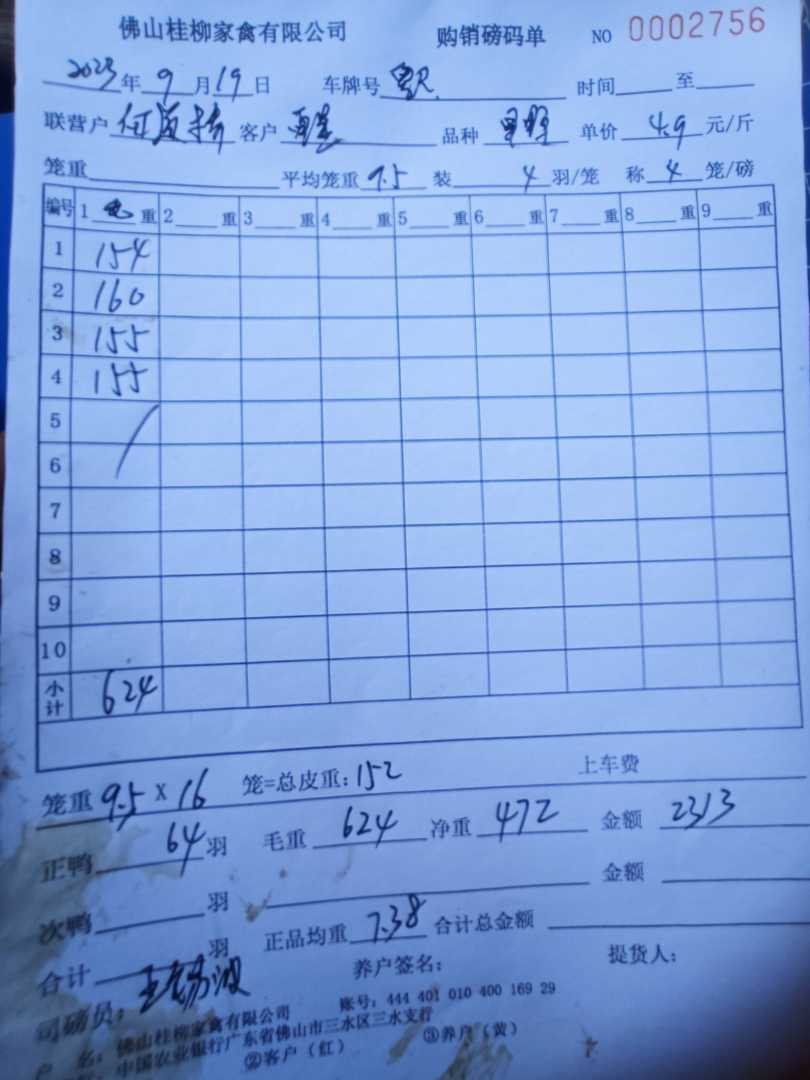 佛山桂柳家禽有限公司 购销磅码单 NO 0002756
2023年9月19日 车牌号 时间 至
联营户 客户 品种 单价 4.9 元/斤
笼重 平均笼重 9.5 装 4 羽/笼 称 4 笼/磅
编号 1 重 2 重 3 重 4 重 5 重 6 重 7 重 8 重 9 重
1 154
2 160
3 155
4 155
5
6
7
8
9
10
小计 624
笼重 9.5 X 16 笼=总皮重: 152 上车费
正鸭 64 羽 毛重 624 净重 472 金额 2313
次鸭 羽 金额
合计 羽 正品均重 7.38 合计总金额
司磅员: 养户签名: 提货人:
户 名: 佛山桂柳家禽有限公司 账号: 444 401 010 400 169 29
中国农业银行广东省佛山市三水区三水支行
②客户(红) ③养户(黄)